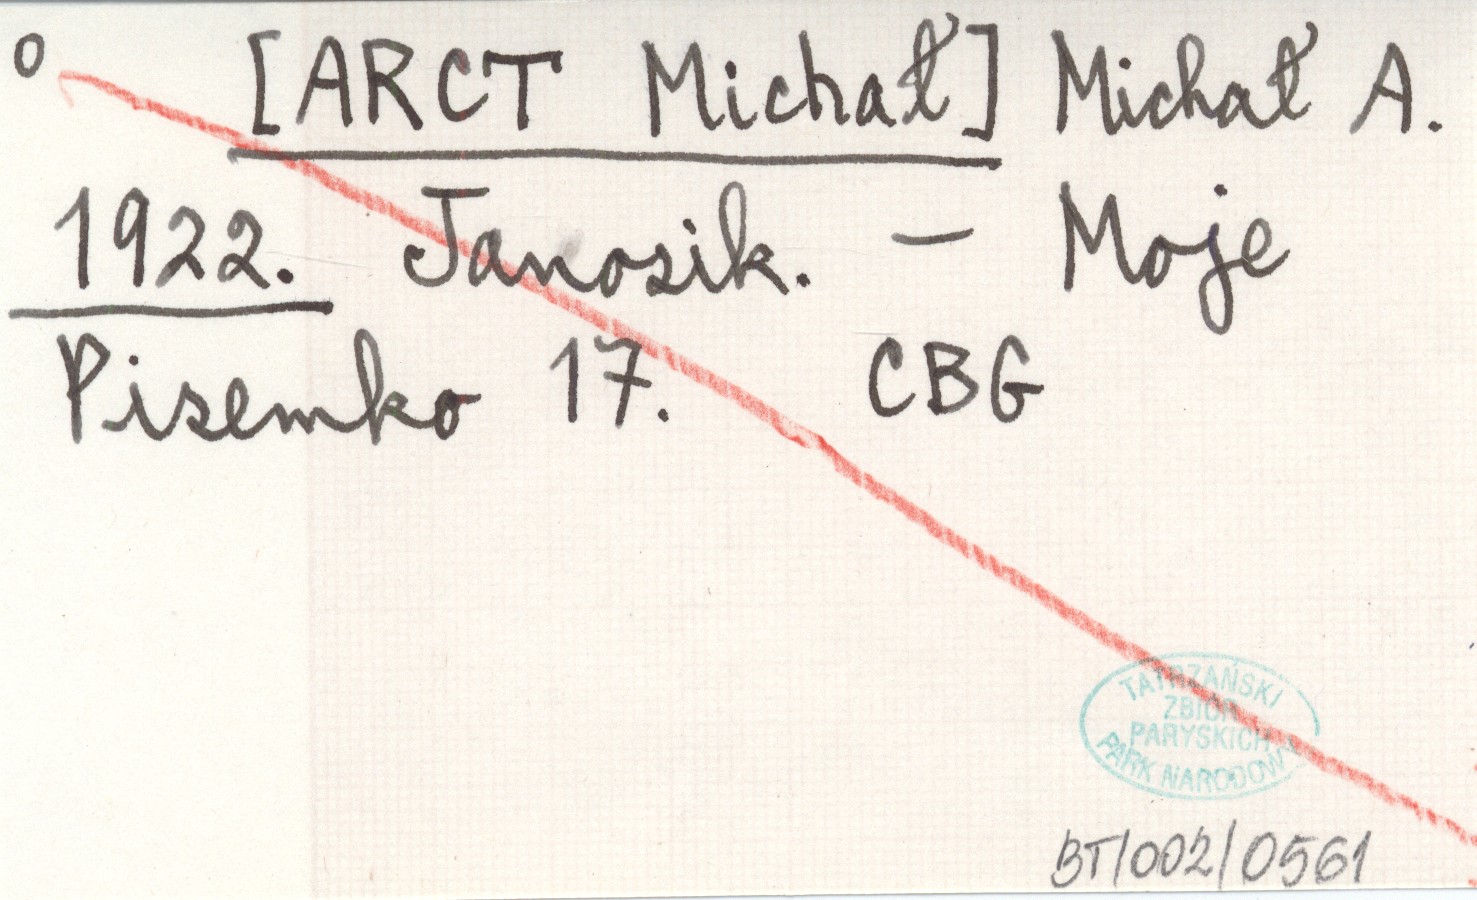 o [ARCT Michał] Michał A.
1922. Janosik. — Moje
Pisemko 17. CBG
TATRZAŃSKI
ZBIÓR
PARYSKICH
PARK NARODOWY
BT/002/0561